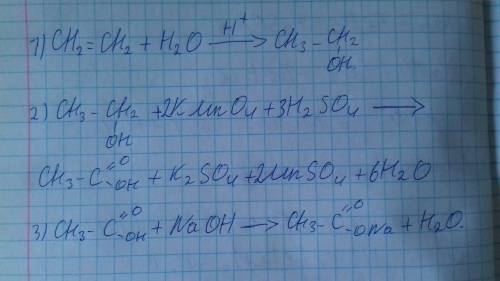 1) CH2=CH2 + H2O —H+→ CH3-CH2
OH
2) CH3-CH2 +2KMnO4 +3H2SO4 →
OH
CH3-C=O-OH + K2SO4 +2MnSO4 +6H2O
3) CH3-C=O-OH + NaOH → CH3-C=O-ONa + H2O.